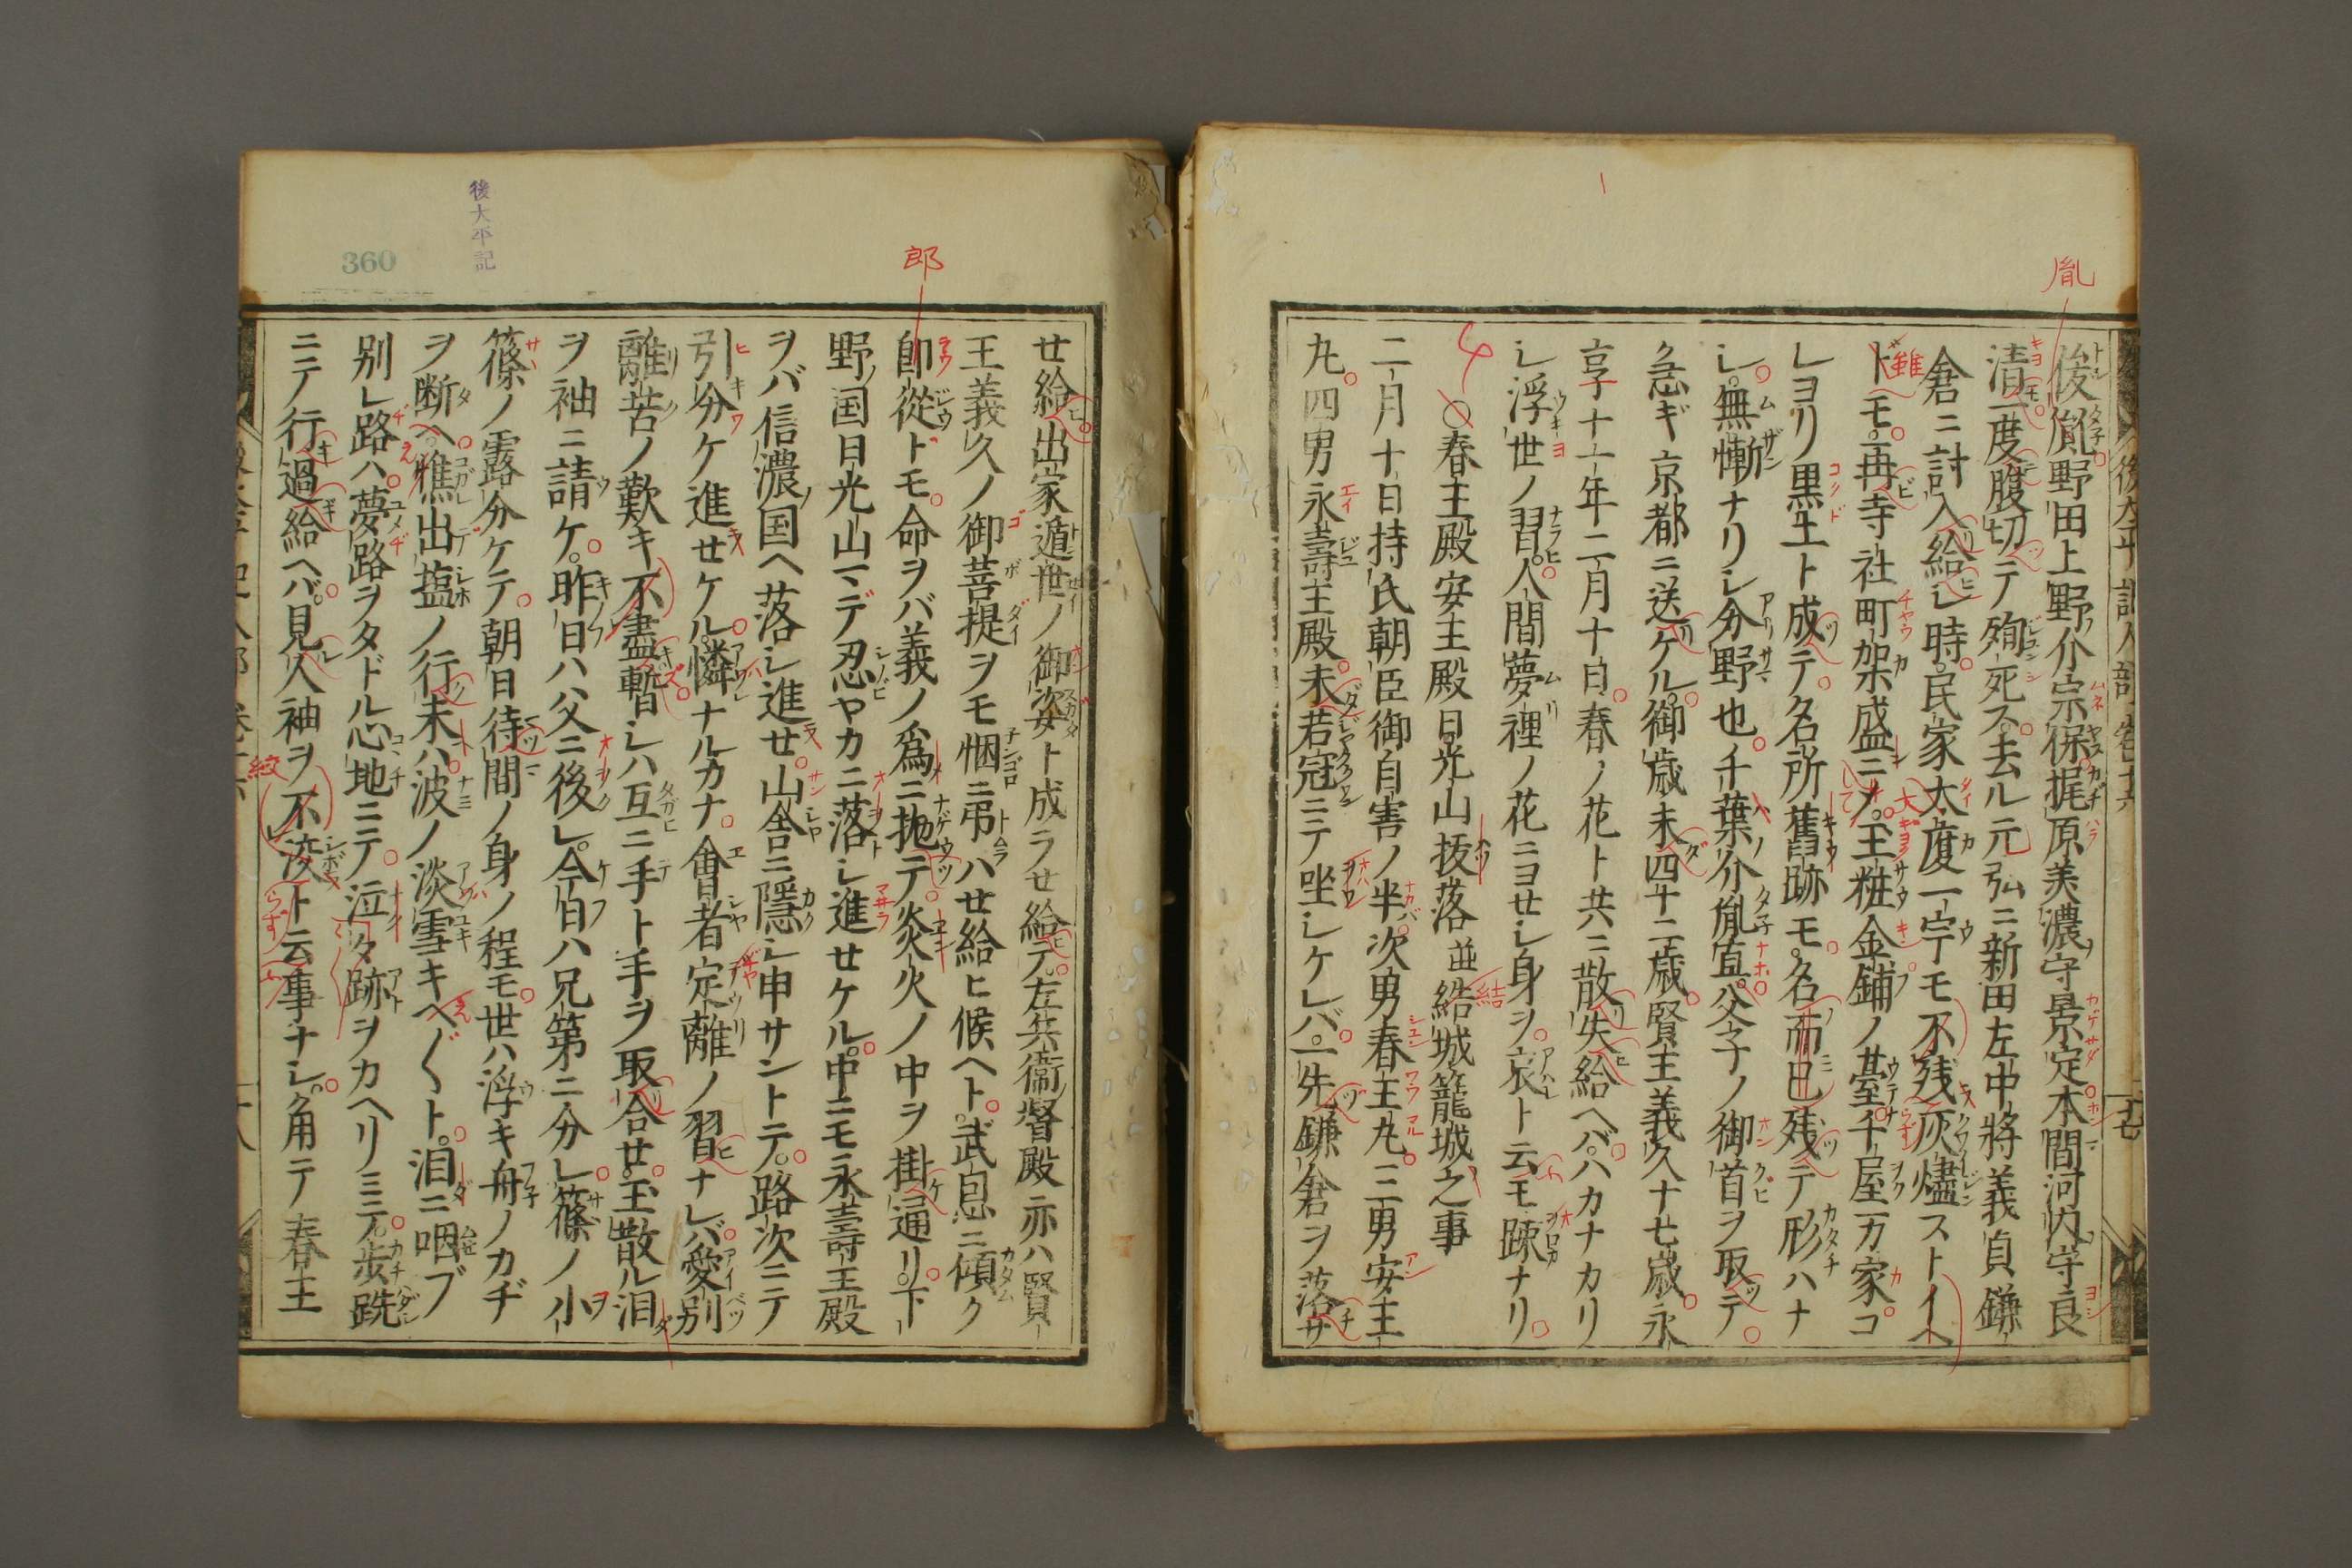 胤
俊胤野田上野介宗保梶原美濃守景定本間河内守良
清一度腹切テ殉死ス去ル元弘ニ新田左中將義貞鎌
倉ニ討入給ヒシ時民家大廈一宇モ不残灰燼ストイヘ
ドモ再寺社町架盛ニメ玉粧金鋪ノ臺千屋万家コ
レヨリ黒土ト成テ名所舊跡モ名而已残テ形ハナ
シ無慚ナリシ分野也千葉介胤直父子ノ御首ヲ取テ
急ギ京都ニ送ケル御歳未四十二歳賢王義久十七歳永
享十一年二月十日春ノ花ト共ニ散失給ヘバハカナカリ
シ浮世ノ習人間夢裡ノ花ニヨセシ身ヲ哀ト云モ踈ナリ
○春王殿安王殿日光山抜落並結城籠城之事
二月十日持氏朝臣御自害ノ半次男春王丸三男安王
丸四男永壽王殿未若冠ニテ坐シケレバ一先鎌倉ヲ落サ
後太平記
360
郎
せ給出家遁世ノ御姿ト成ラせ給テ左兵衞督殿亦ハ賢
王義久ノ御菩提ヲモ悃ニ弔ハせ給ヒ候ヘト武息ニ傾ク
郎從トモ命ヲバ義ノ爲ニ抛テ炎火ノ中ヲ掛通リ下
野国日光山マデ忍ヤカニ落シ進せケル中ニモ永壽王殿
ヲバ信濃国ヘ落シ進せ山舎ニ隱シ申サントテ路次ニテ
引分ケ進せケル憐ナルカナ會者定離ノ習ナレバ愛別
離苦ノ歎キ不盡暫シハ互ニ手ト手ヲ取合せ玉散ル泪
ヲ袖ニ請ケ昨日ハ父ニ後レ今日ハ兄弟ニ分レ篠ノ小
篠ノ露分ケテ朝日待間ノ身ノ程モ世ハ浮キ舟ノカヂ
ヲ断ヘ憔出塩ノ行末ハ波ノ淡雪キヘ〱ト泪ニ咽ブ
別レ路ハ夢路ヲタドル心地ニテ泣々跡ヲカヘリミテ歩跣
ニテ行過給ヘバ見人袖ヲ不凌ト云事ナシ角テ春王